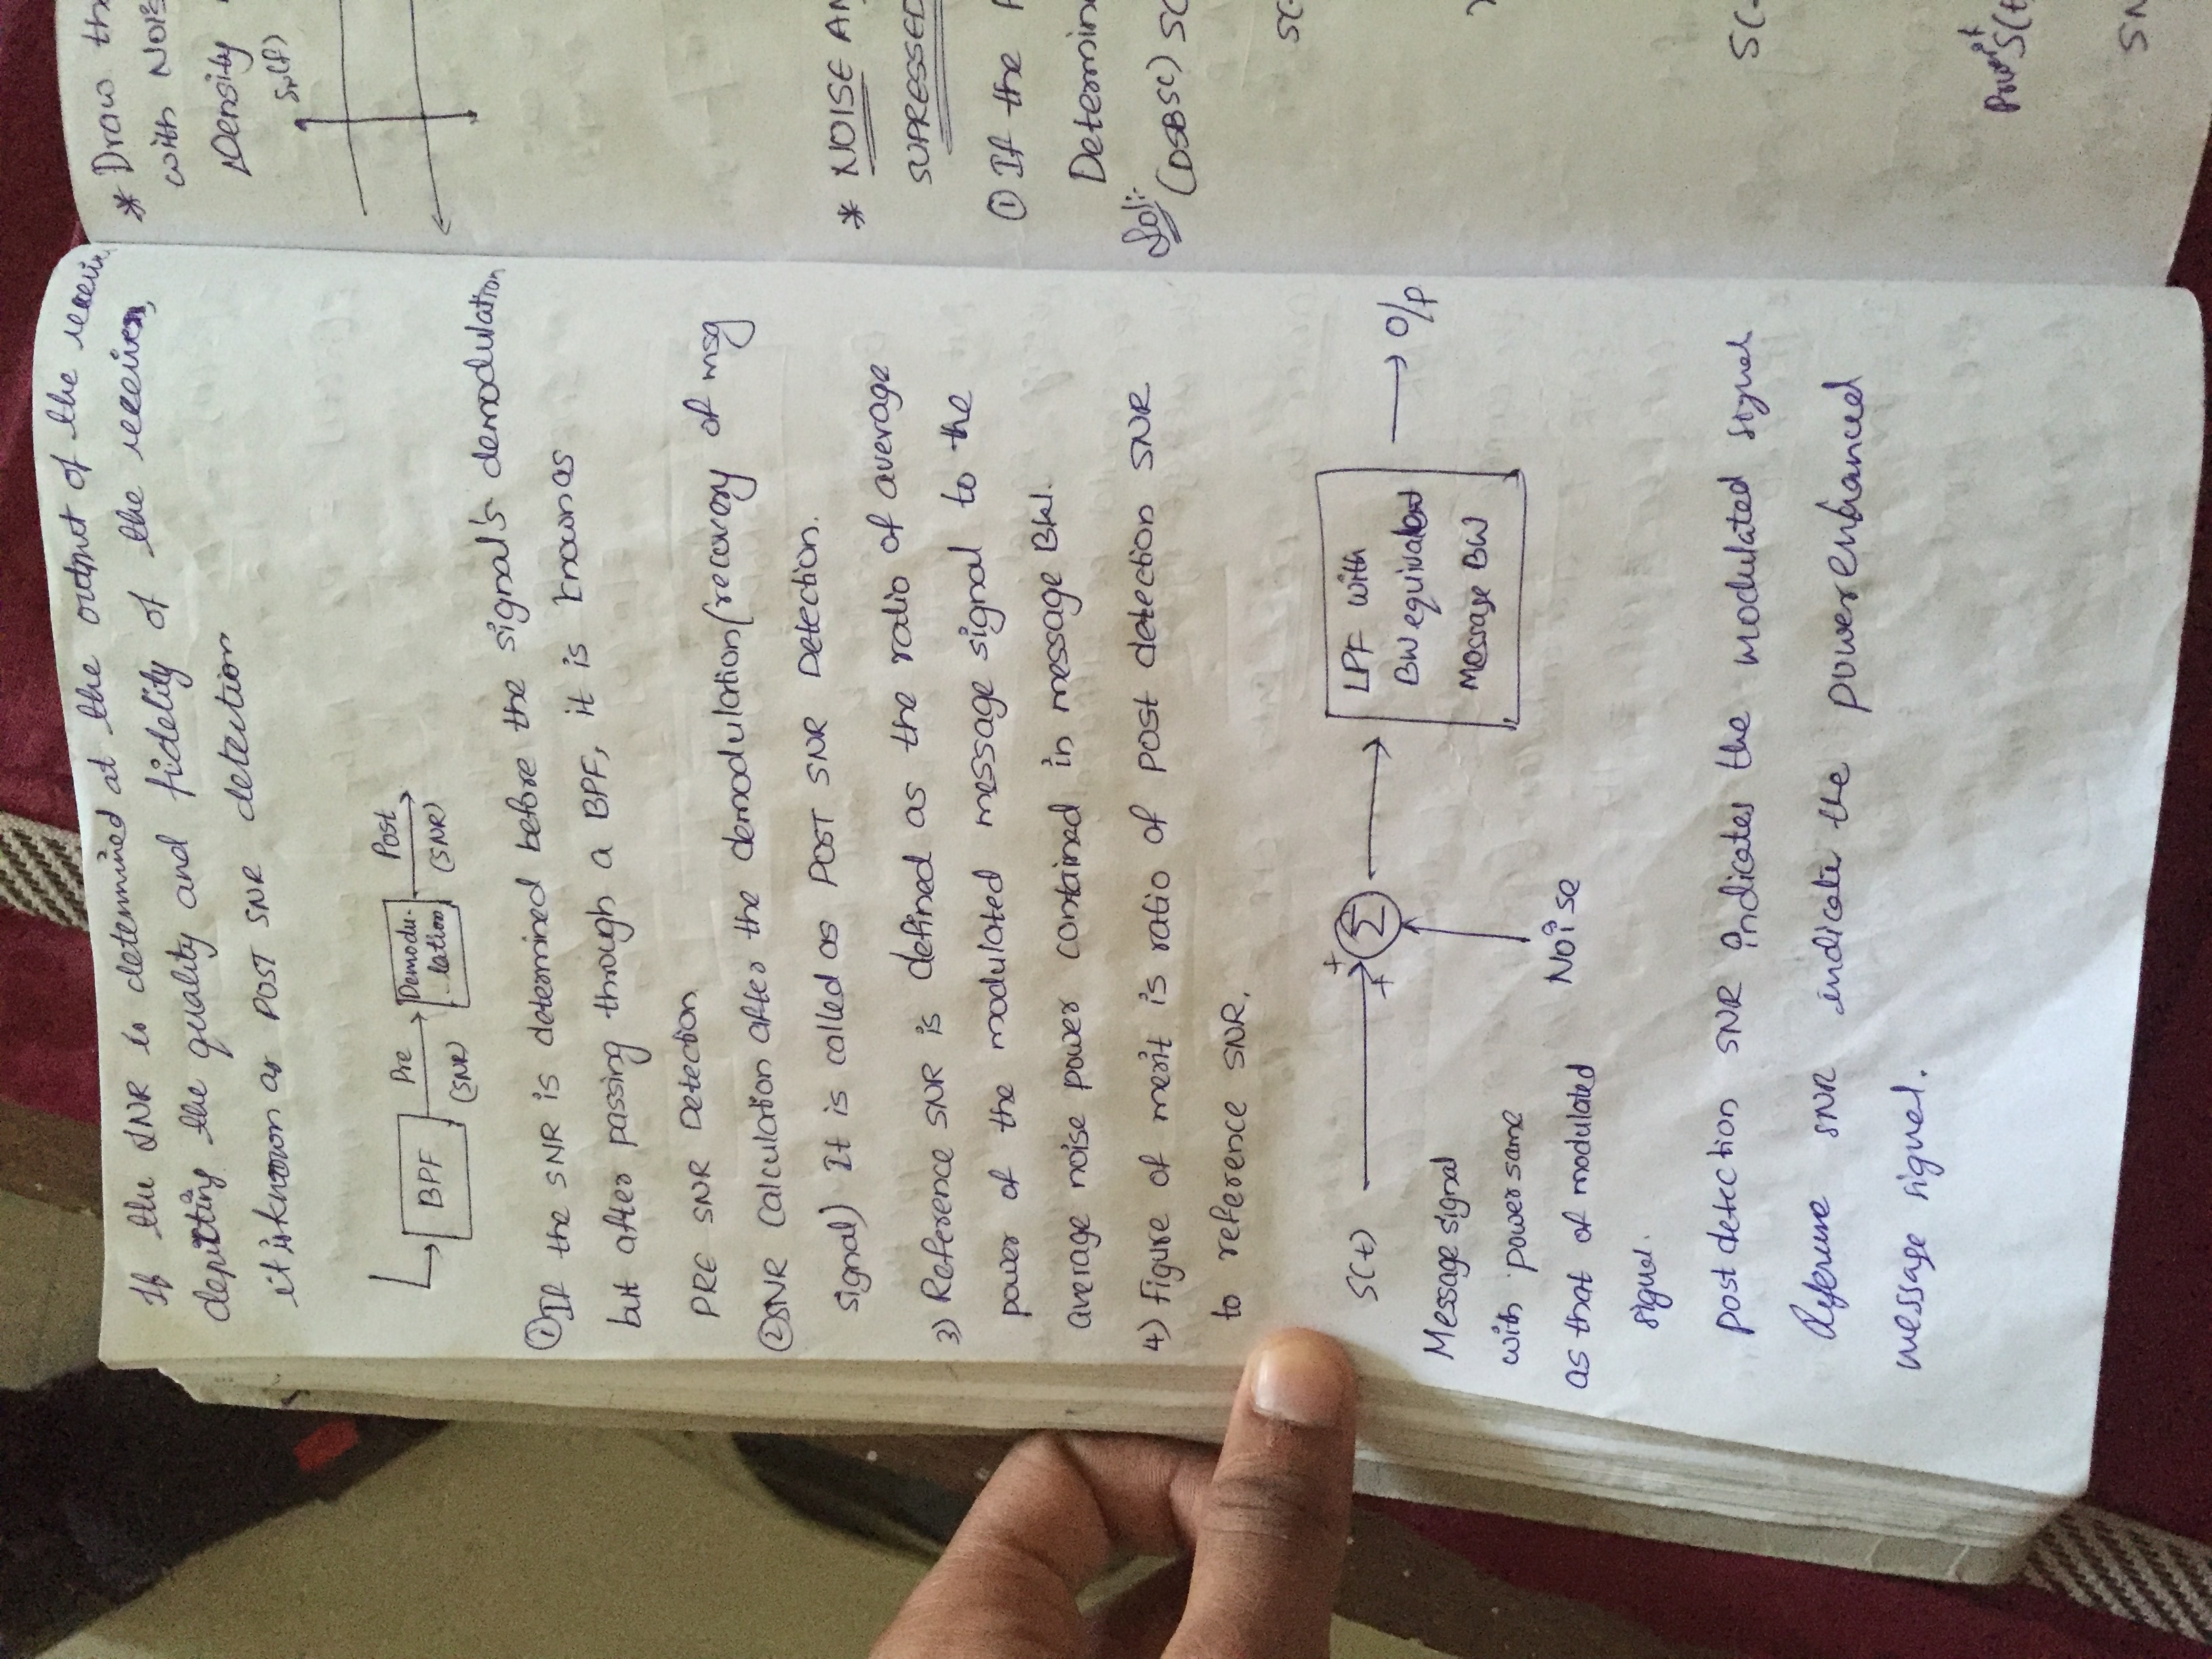 If the SNR is determined at the output of the
depicting the quality and fidelity of the receiver,
it is known as POST SNR detection
BPF
Pre
(SNR)
Demodu-
lation
Post
(SNR)
① If the SNR is determined before the signal's demodulation
but after passing through a BPF, it is known as
PRE SNR Detection
② SNR Calculation after the demodulation (recovery of msg
signal) It is called as POST SNR Detection.
3) Reference SNR is defined as the ratio of average
power of the modulated message signal to the
average noise power contained in message BW.
4) Figure of merit is ratio of post detection SNR
to reference SNR.
S(t)
+
+
Σ
LPF with
BW equivalent
Message BW
O/p
Message signal
with power same
as that of modulated
signal.
Noise
post detection SNR indicates the modulated signal
Reference SNR indicates the power enhanced
message signal.
* Draw
with
Density
SN(f)
* NOISE
SUPRESSED
① If the
Sol:-
(DSBSC)
Power of
S(t